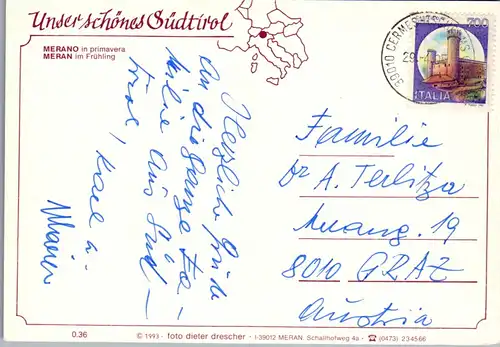 Unser schönes Südtirol
MERANO in primavera
MERAN im Frühling
Herzliche Grüße
an die ganze Fa-
milie aus Süd-
tirol,
Karl u.
700
ITALIA
39010 CERMES
29.
Familie
Dr A. Terlitza
19
8010 GRAZ
Austria
0.36
© 1993 - foto dieter drescher - I-39012 MERAN Schallhofweg 4a - ☎ (0473) 234566